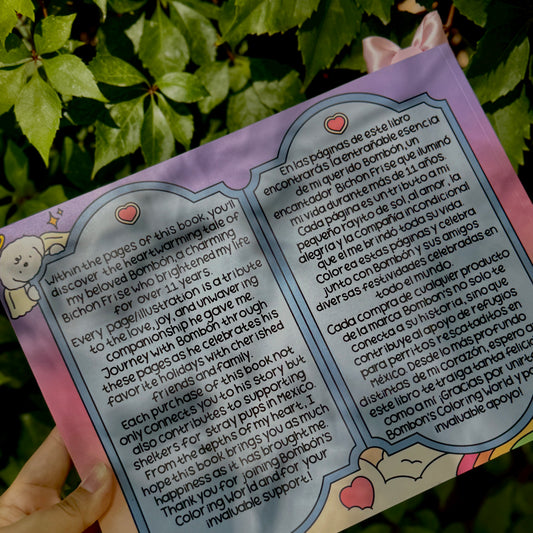 Within the pages of this book, you'll
discover the heartwarming tale of
my beloved Bombón, a charming
Bichon Frise who brightened my life
for over 11 years.
Every page/illustration is a tribute
to the love, joy, and unwavering
companionship he gave me.
Journey with Bombón through
these pages as he celebrates his
favorite holidays with cherished
friends and family.
Each purchase of this book not
only connects you to his story but
also contributes to supporting
shelters for stray pups in Mexico.
From the depths of my heart, I
hope this book brings you as much
happiness as it has brought me.
Thank you for joining Bombón's
Coloring World and for your
invaluable support!
En las páginas de este libro
encontrarás la entrañable esencia
de mi querido Bombón, un
encantador Bichon Frise que iluminó
mi vida durante más de 11 años.
Cada página es un tributo a mi
pequeño rayito de sol, al amor, la
alegría y la compañía incondicional
que el me brindó toda su vida.
Colorea estas páginas y celebra
junto con Bombón y sus amigos
diversas festividades celebradas en
todo el mundo.
Cada compra de cualquier producto
de la marca Bombón's no solo te
conecta a su historia, sino que
contribuye al apoyo de refugios
para perritos rescatados en
México. Desde lo más profundo
distintas de mi corazón, espero
este libro te traiga tanta felici
como a mi. ¡Gracias por unirt
Bombón's Coloring World y po
invaluable apoyo!